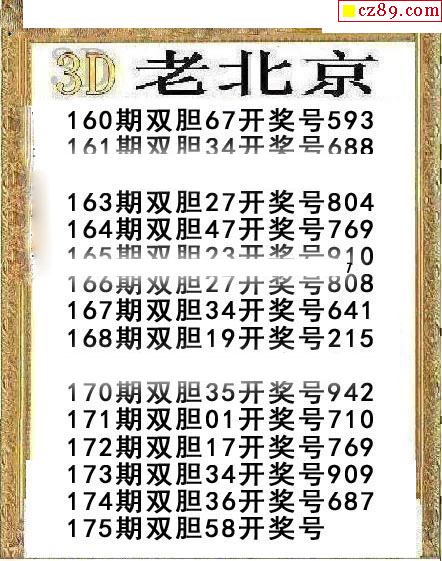 cz89.com
3D 老北京
160期双胆67开奖号593
161期双胆34开奖号688
163期双胆27开奖号804
164期双胆47开奖号769
165期双胆23开奖号910
7
166期双胆27开奖号808
167期双胆34开奖号641
168期双胆19开奖号215
170期双胆35开奖号942
171期双胆01开奖号710
172期双胆17开奖号769
173期双胆34开奖号909
174期双胆36开奖号687
175期双胆58开奖号